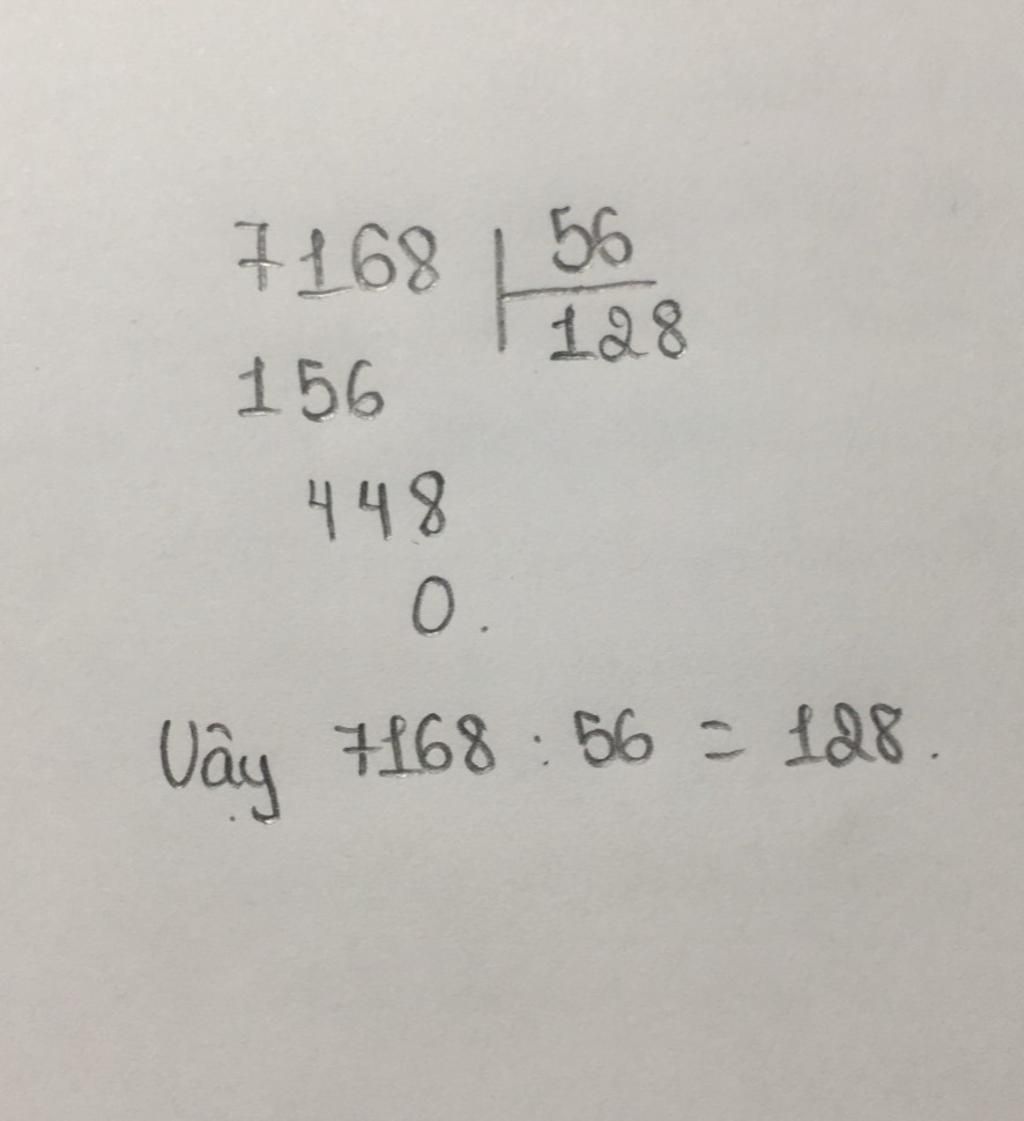 7168 56
128
156
448
0.
Vậy 7168 : 56 = 128.